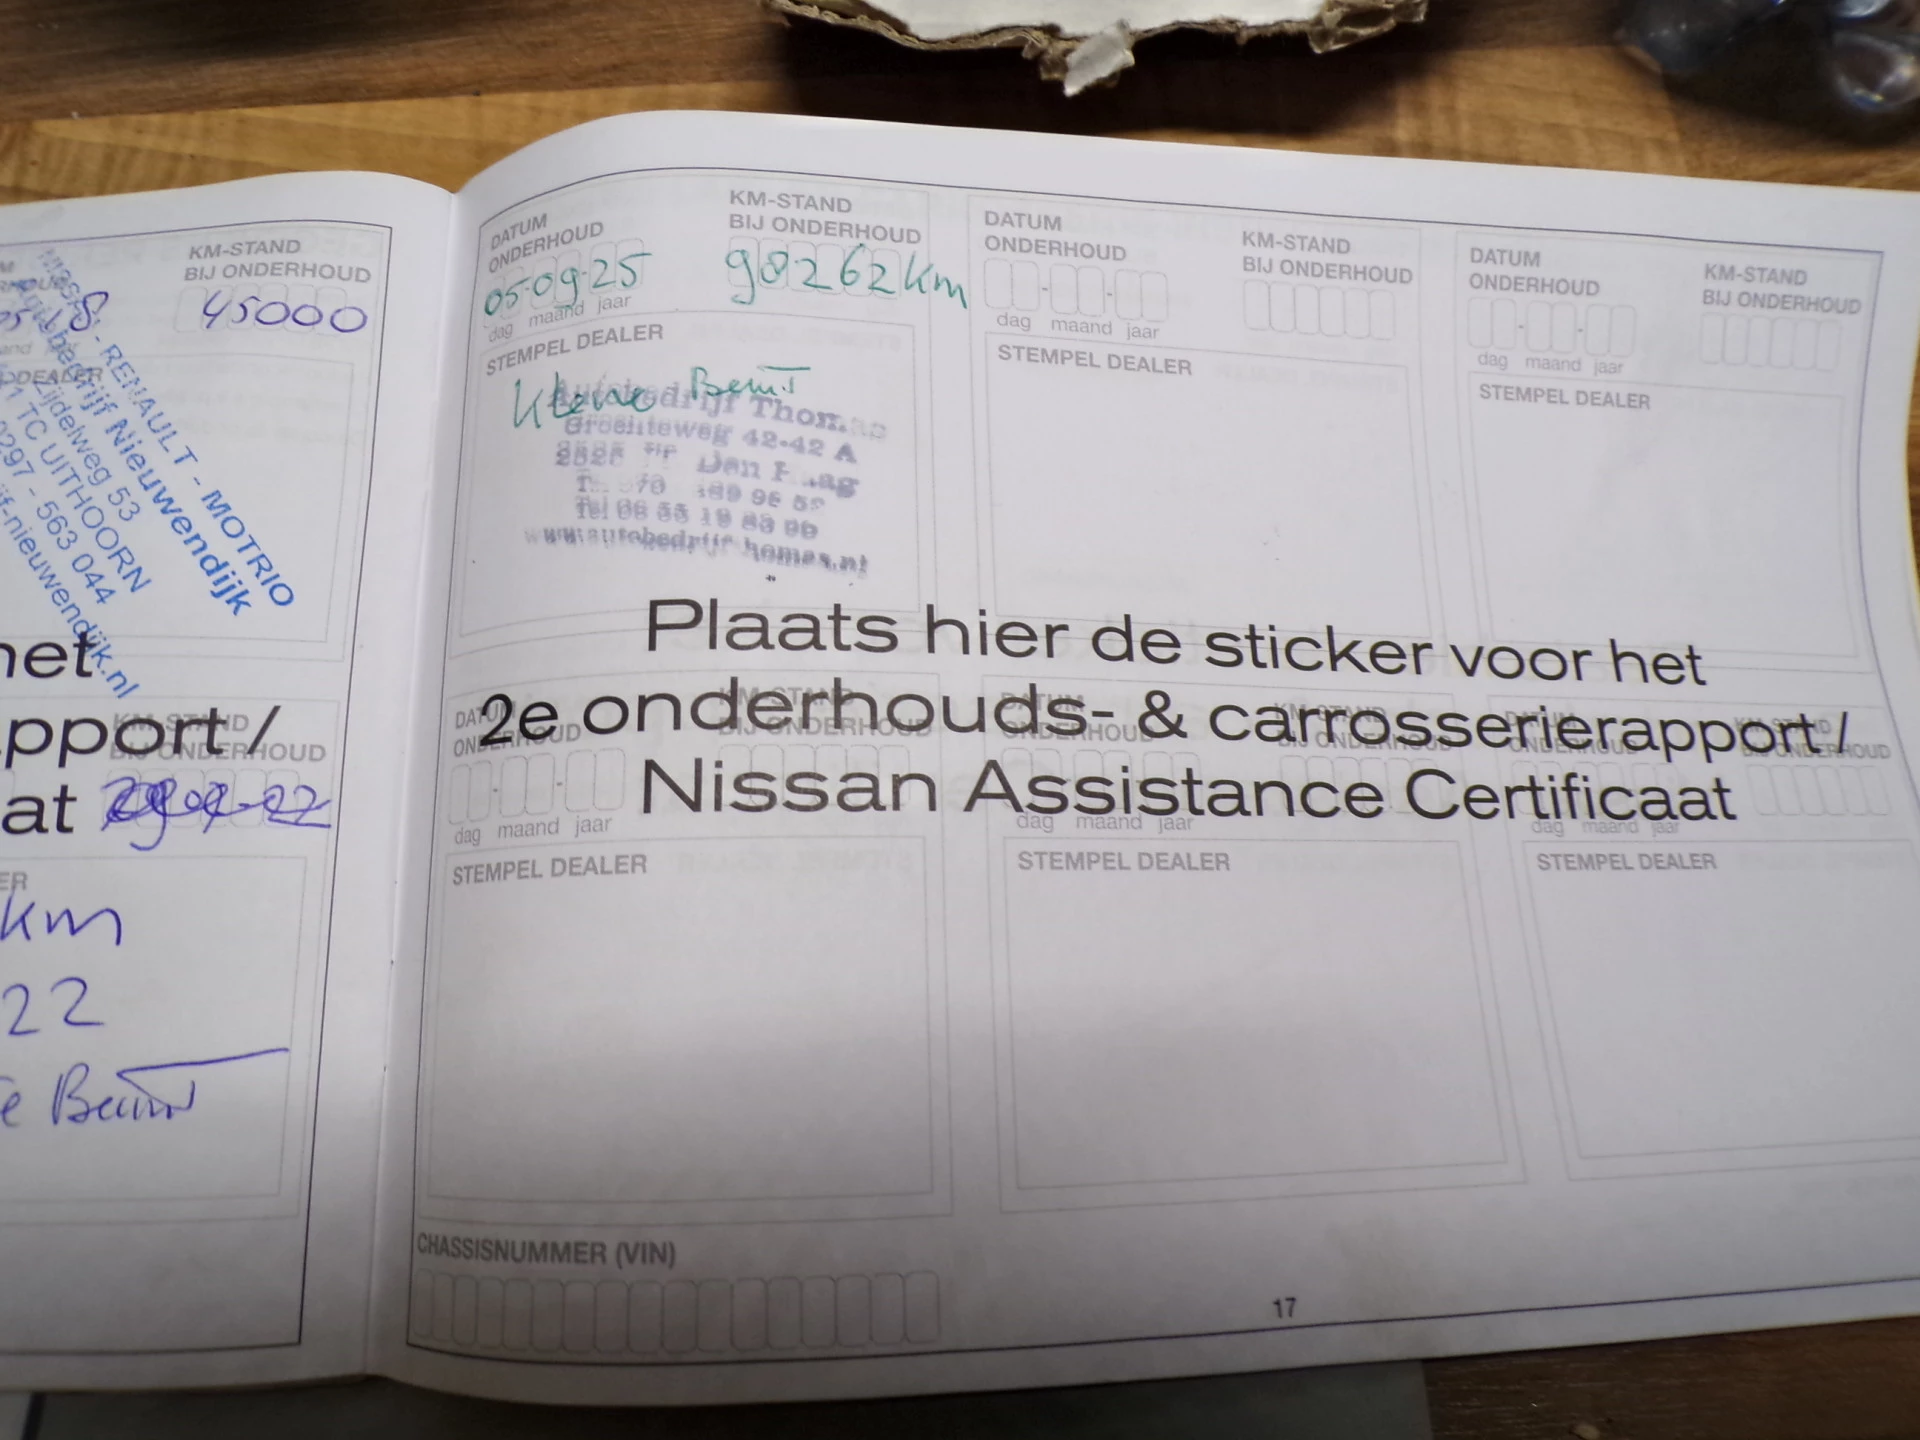 KM-STAND
BIJ ONDERHOUD
45000
NISSAN - RENAULT - MOTRIO
Autobedrijf Nieuwendijk
Zijdelweg 53
TC UITHOORN
0297 - 563 044
f-nieuwendijk.nl
DEALER
het
apport /
aat
KM-STAND
BIJ ONDERHOUD
ER
km
22
te Beurt
DATUM
ONDERHOUD
KM-STAND
BIJ ONDERHOUD
05-09-25
98262 km
dag maand jaar
STEMPEL DEALER
kleine Beurt
Autobedrijf Thomas
Groenteweg 42-42 A
2525 Den Haag
www.autobedrijfthomas.nl
DATUM
ONDERHOUD
KM-STAND
BIJ ONDERHOUD
dag maand jaar
STEMPEL DEALER
DATUM
ONDERHOUD
KM-STAND
BIJ ONDERHOUD
dag maand jaar
STEMPEL DEALER
Plaats hier de sticker voor het
2e onderhouds- & carrosserierapport /
Nissan Assistance Certificaat
DATUM
ONDERHOUD
KM-STAND
BIJ ONDERHOUD
dag maand jaar
STEMPEL DEALER
DATUM
ONDERHOUD
KM-STAND
BIJ ONDERHOUD
dag maand jaar
STEMPEL DEALER
DATUM
ONDERHOUD
KM-STAND
BIJ ONDERHOUD
dag maand jaar
STEMPEL DEALER
CHASSISNUMMER (VIN)
17